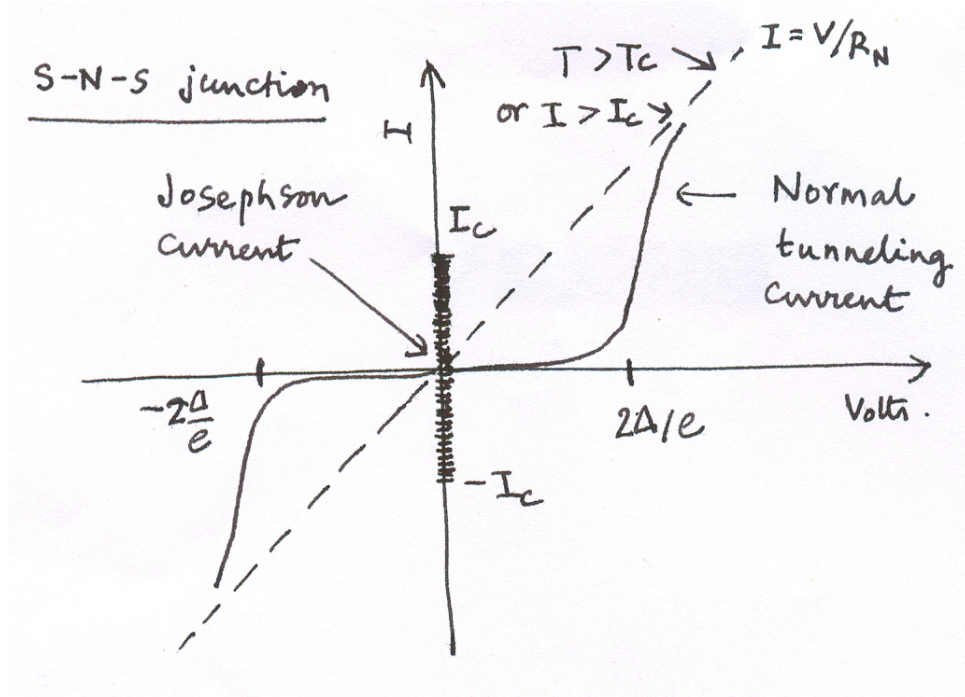 S-N-S junction
I = V/R_N
T > Tc
or I > Ic
I
Josephson
current
Ic
Normal
tunneling
current
-2Δ/e
2Δ/e
Volts.
-Ic